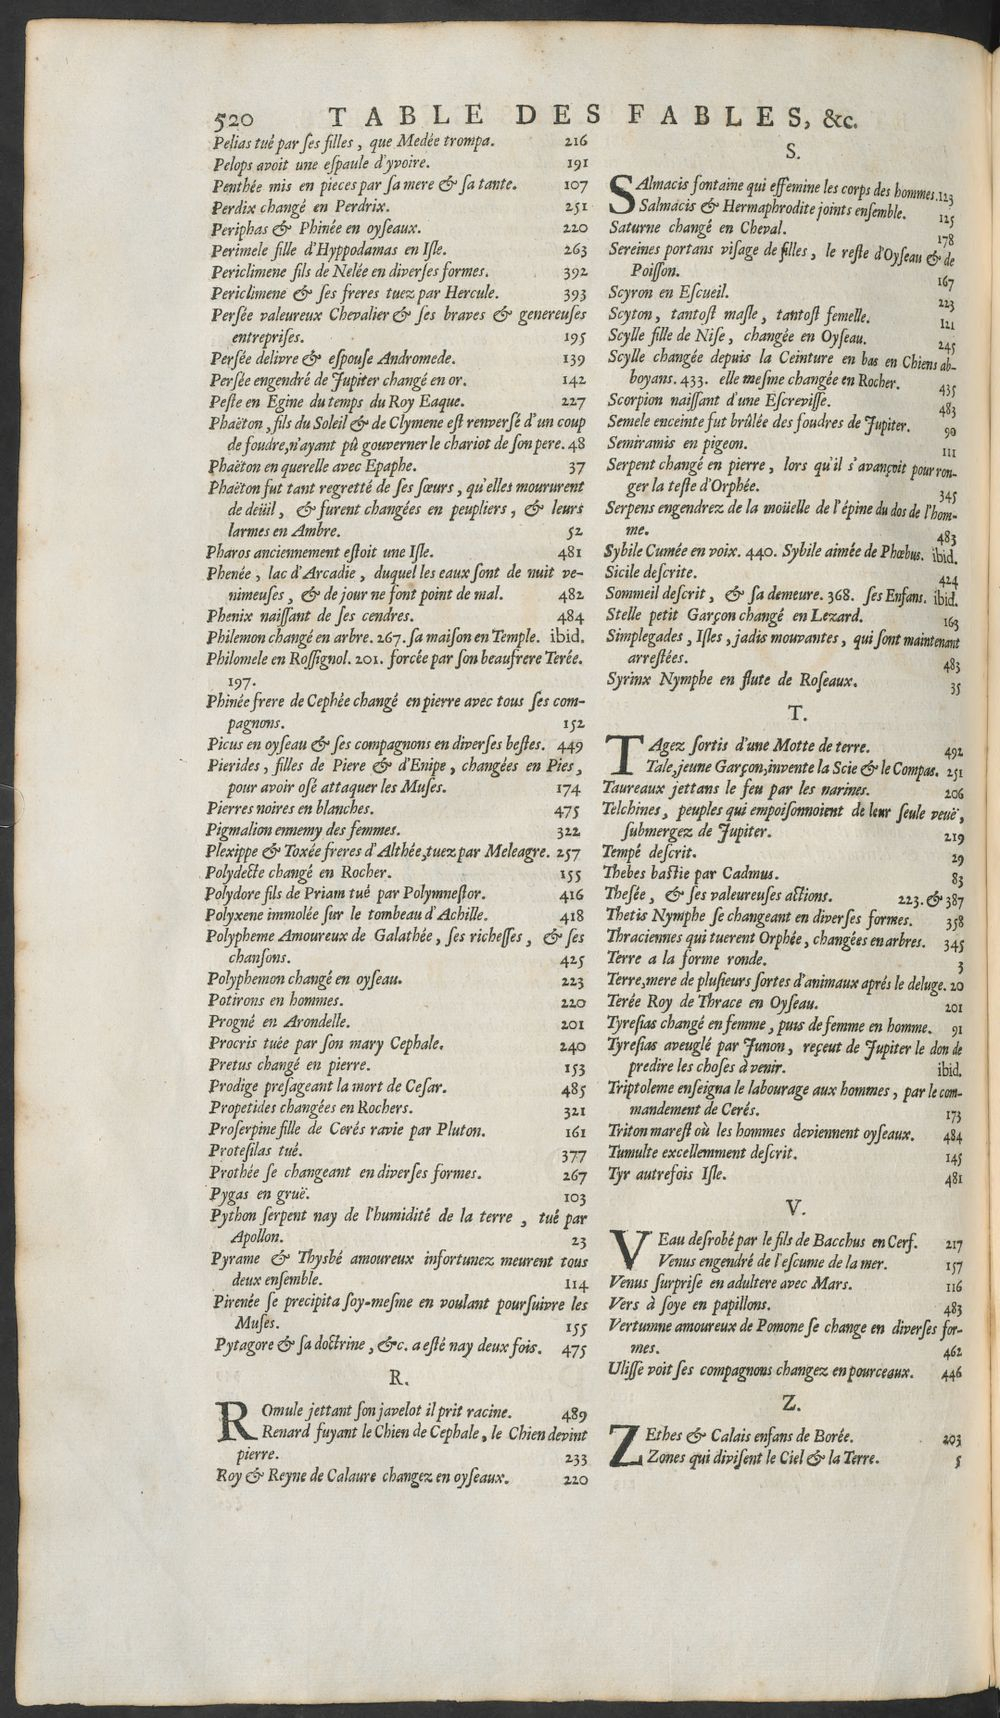 520 TABLE DES FABLES, &c.
Pelias tué par ſes filles, que Medée trompa. 216
Pelops avoit une eſpaule d'yvoire. 191
Penthée mis en pieces par ſa mere & ſa tante. 107
Perdix changé en Perdrix. 251
Periphas & Phinée en oyſeaux. 220
Perimele fille d'Hyppodamas en Iſle. 263
Periclimene fils de Nelée en diverſes formes. 392
Periclimene & ſes freres tuez par Hercule. 393
Perſée valeureux Chevalier & ſes braves & genereuſes
entrepriſes. 195
Perſée delivre & eſpouſe Andromede. 139
Perſée engendré de Jupiter changé en or. 142
Peſte en Egine du temps du Roy Eaque. 227
Phaëton, fils du Soleil & de Clymene eſt renverſé d'un coup
de foudre, n'ayant pû gouverner le chariot de ſon pere. 48
Phaëton en querelle avec Epaphe. 37
Phaëton fut tant regretté de ſes ſœurs, qu'elles moururent
de deüil, & furent changées en peupliers, & leurs
larmes en Ambre. 52
Pharos anciennement eſtoit une Iſle. 481
Phenée, lac d'Arcadie, duquel les eaux ſont de nuit ve-
nimeuſes, & de jour ne font point de mal. 482
Phenix naiſſant de ſes cendres. 484
Philemon changé en arbre. 267. ſa maiſon en Temple. ibid.
Philomele en Roſſignol. 201. forcée par ſon beaufrere Terée.
197.
Phinée frere de Cephée changé en pierre avec tous ſes com-
pagnons. 152
Picus en oyſeau & ſes compagnons en diverſes beſtes. 449
Pierides, filles de Piere & d'Enipe, changées en Pies,
pour avoir oſé attaquer les Muſes. 174
Pierres noires en blanches. 475
Pigmalion ennemy des femmes. 322
Plexippe & Toxée freres d'Althée, tuez par Meleagre. 257
Polydecte changé en Rocher. 155
Polydore fils de Priam tué par Polymneſtor. 416
Polyxene immolée ſur le tombeau d'Achille. 418
Polypheme Amoureux de Galathée, ſes richeſſes, & ſes
chanſons. 425
Polyphemon changé en oyſeau. 223
Potirons en hommes. 220
Progné en Arondelle. 201
Procris tuée par ſon mary Cephale. 240
Pretus changé en pierre. 153
Prodige preſageant la mort de Ceſar. 485
Propetides changées en Rochers. 321
Proſerpine fille de Cerés ravie par Pluton. 161
Proteſilas tué. 377
Prothée ſe changeant en diverſes formes. 267
Pygas en gruë. 103
Python ſerpent nay de l'humidité de la terre, tué par
Apollon. 23
Pyrame & Thysbé amoureux infortunez meurent tous
deux enſemble. 114
Pirenée ſe precipita ſoy-meſme en voulant pourſuivre les
Muſes. 155
Pytagore & ſa doctrine, &c. a eſté nay deux fois. 475
R.
ROmule jettant ſon javelot il prit racine. 489
Renard fuyant le Chien de Cephale, le Chien devint
pierre. 233
Roy & Reyne de Calaure changez en oyſeaux. 220
S.
SAlmacis fontaine qui effemine les corps des hommes. 123
Salmacis & Hermaphrodite joints enſemble. 125
Saturne changé en Cheval. 178
Sereines portans viſage de filles, le reſte d'Oyſeau & de
Poiſſon. 167
Scyron en Eſcueil. 223
Scyton, tantoſt maſle, tantoſt femelle. 121
Scylle fille de Niſe, changée en Oyſeau. 245
Scylle changée depuis la Ceinture en bas en Chiens ab-
boyans. 433. elle meſme changée en Rocher. 435
Scorpion naiſſant d'une Eſcreviſſe. 483
Semele enceinte fut brûlée des foudres de Jupiter. 90
Semiramis en pigeon. 111
Serpent changé en pierre, lors qu'il s'avançoit pour ron-
ger la teſte d'Orphée. 345
Serpens engendrez de la moüelle de l'épine du dos de l'hom-
me. 483
Sybile Cumée en voix. 440. Sybile aimée de Phœbus. ibid.
Sicile deſcrite. 424
Sommeil deſcrit, & ſa demeure. 368. ſes Enfans. ibid.
Stelle petit Garçon changé en Lezard. 163
Simplegades, Iſles, jadis mouvantes, qui ſont maintenant
arreſtées. 483
Syrinx Nymphe en flute de Roſeaux. 35
T.
TAgez ſortis d'une Motte de terre. 492
Tale, jeune Garçon, invente la Scie & le Compas. 251
Taureaux jettans le feu par les narines. 206
Telchines, peuples qui empoiſonnoient de leur ſeule veuë,
ſubmergez de Jupiter. 219
Tempé deſcrit. 29
Thebes baſtie par Cadmus. 83
Theſée, & ſes valeureuſes actions. 223. & 387
Thetis Nymphe ſe changeant en diverſes formes. 358
Thraciennes qui tuerent Orphée, changées en arbres. 345
Terre a la forme ronde. 3
Terre, mere de pluſieurs ſortes d'animaux aprés le deluge. 20
Terée Roy de Thrace en Oyſeau. 201
Tyreſias changé en femme, puis de femme en homme. 91
Tyreſias aveuglé par Junon, reçeut de Jupiter le don de
predire les choſes à venir. ibid.
Triptoleme enſeigna le labourage aux hommes, par le com-
mandement de Cerés. 173
Triton mareſt où les hommes deviennent oyſeaux. 484
Tumulte excellemment deſcrit. 145
Tyr autrefois Iſle. 481
V.
VEau deſrobé par le fils de Bacchus en Cerf. 217
Venus engendré de l'eſcume de la mer. 157
Venus ſurpriſe en adultere avec Mars. 116
Vers à ſoye en papillons. 483
Vertumne amoureux de Pomone ſe change en diverſes for-
mes. 462
Uliſſe voit ſes compagnons changez en pourceaux. 446
Z.
ZEthes & Calais enfans de Borée. 203
Zones qui diviſent le Ciel & la Terre. 5